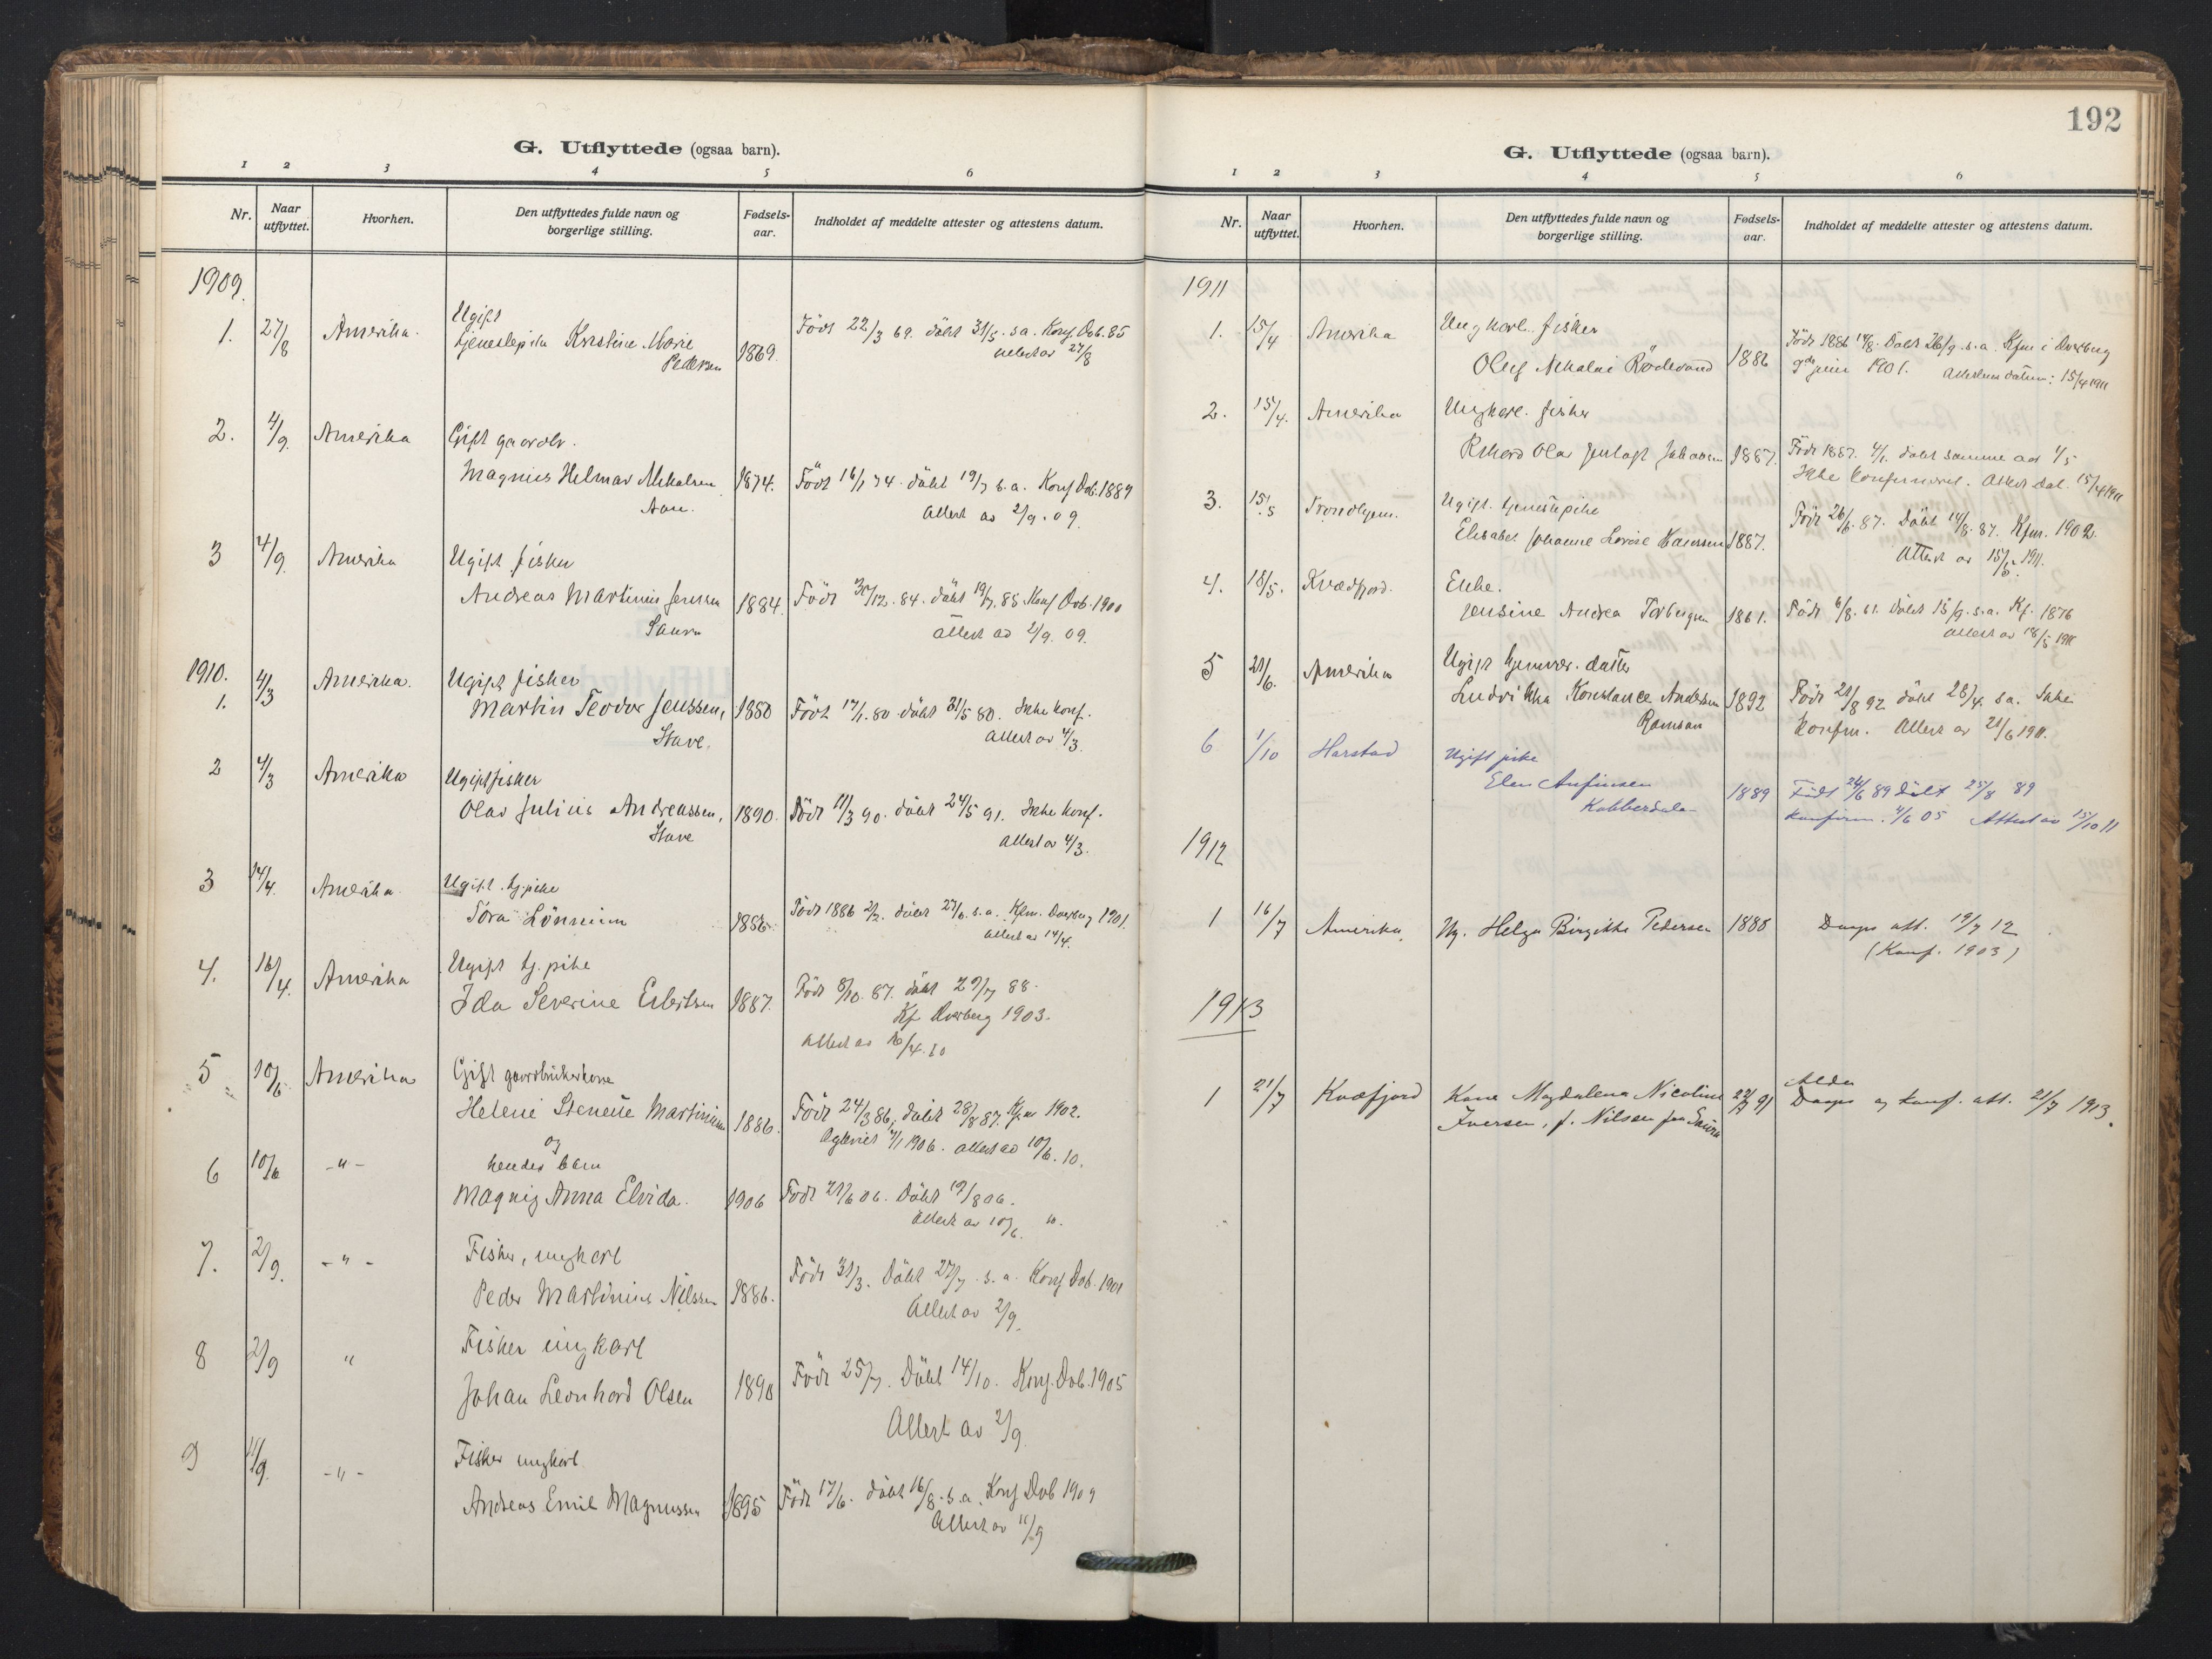 G. Utflyttede (ogsaa barn).
1 2 3 4 5 6
Nr. Naar utflyttet. Hvorhen. Den utflyttedes fulde navn og borgerlige stilling. Fødsels-aar. Indholdet af meddelte attester og attestens datum.
1909.
1. 27/8 Amerika. Ugift
tjenestepike Kristine Marie
Pedersen 1869. Födt 22/3 69. döbt 31/5. s.a. Konf Dvb. 85
attest av 27/8
2. 4/9. Amerika Gift gaardbr.
Magnus Helmar Nikolaisen 1874. Födt 16/1 74. döbt 19/7 s.a. Konf Dvb. 1889
Aan. Attest av 2/9. 09.
3 4/9. Amerika Ugift fisker
Andreas Martinus Jensen 1884. Födt 30/12. 84. döbt 19/7. 85. Konf Dvb. 1900
Saura attest av 2/9. 09.
1910.
1. 4/3 Amerika. Ugift fisker
Martin Teodor Jenssen, 1880 Födt 17/1. 80 döbt 31/5 80. Ikke konf.
Stave. attest av 4/3.
2 4/3 Amerika Ugift fisker
Olav Julius Andreassen, 1890. Födt 11/3 90. döbt 24/5 91. Ikke konf.
Stave attest av 4/3.
3 14/4. Amerika. Ugift. tj.pike
Tora Lönnum 1886 Födt 1886 2/2. döbt 27/6. s.a. Kfm. Dverberg 1901.
attest av 14/4.
4. 16/4. Amerika Ugift tj. pike
Ida Severine Eilertsen 1887. Födt 8/10. 87. döbt 29/7 88.
Kf Dverberg 1903.
attest av 16/4. 10
5 10/6 Amerika Gift gaardbrukerkone
Helene Stenette Martinussen 1886. Födt 24/3 86, döbt 28/8 87. Kfm 1902.
og Ægteviet 1/1 1906. attest av 10/6. 10.
6 10/6 -"- hendes barn
Magnig Anna Elvida. 1906 Födt 21/6 06. Döbt 19/8 06.
attest av 10/6. 10.
7. 2/9. -"- Fisker, ungkarl
Peder Martinius Nilssen 1886. Födt 31/3. Döbt 27/7. s.a. Konf Dvb. 1901
Attest av 2/9.
8 2/9 " Fisker ungkarl
Johan Leonhard Olsen 1890 Födt 25/7. Döbt 14/10. Konf. Dvb. 1905
Attest av 2/9
9 11/9. -"- Fisker ungkarl
Andreas Emil Magnussen 1895 Födt 17/6. döbt 16/8. s.a. Konf Dvb 1909
Attest av 11/9
192
G. Utflyttede (ogsaa barn).
1 2 3 4 5 6
Nr. Naar utflyttet. Hvorhen. Den utflyttedes fulde navn og borgerlige stilling. Fødsels-aar. Indholdet af meddelte attester og attestens datum.
1911
1. 15/4 Amerika Ungkarl. fisker
Oluf Nikolai Rödesand 1886 Födt 1886 14/8. Döbt 26/9. s.a. Kfm i Dverberg
9de juni 1901. Attestens datum: 15/4 1911
2. 15/4. Amerika Ungkarl. fisker
Rikard Olav Johansen 1887. Födt 1887. 4/1. döbt samme aar 1/5
Ikke konfirmeret. Attest dat. 15/4 1911
3. 15/5 Trondhjem. Ugift. tjenestepike
Elisabet Johanne Lovise 1887. Födt 26/6. 87. Döbt 14/8. 87. Kfm. 1902.
Attest av 15/5. 1911.
4. 18/5. Kvædfjord. Enke.
Jensine Andrea Torbergsen 1861. Födt 6/8. 61. Döbt 15/9. s.a. Kf. 1876
attest av 18/5 1911
5 21/6. Amerika Ugift hjemvær. datter
Ludvikka Konstance Andersen 1892 Födt 21/3 92 döbt 28/4. s.a. Ikke
Ramsaa konfm. Attest av 21/6 1911.
6 1/10 Harstad Ugift pike
Elen Anfinsen 1889 Födt 24/6 89 Döbt 25/8 89
Kobberdalen konfirm. 4/6 05 Attest av 15/10 11
1912
1 16/7 Amerika. Ug. Helga Birgitte Pedersen 1888 Daaps att. 19/7 12
(Konf. 1903)
1913
1 21/7 Kvæfjord Kone Magdalena Nicoline 22/7 91 Alder
Daaps og konf. att. 21/7 1913.
Iversen, f. Nilsen fra Saura